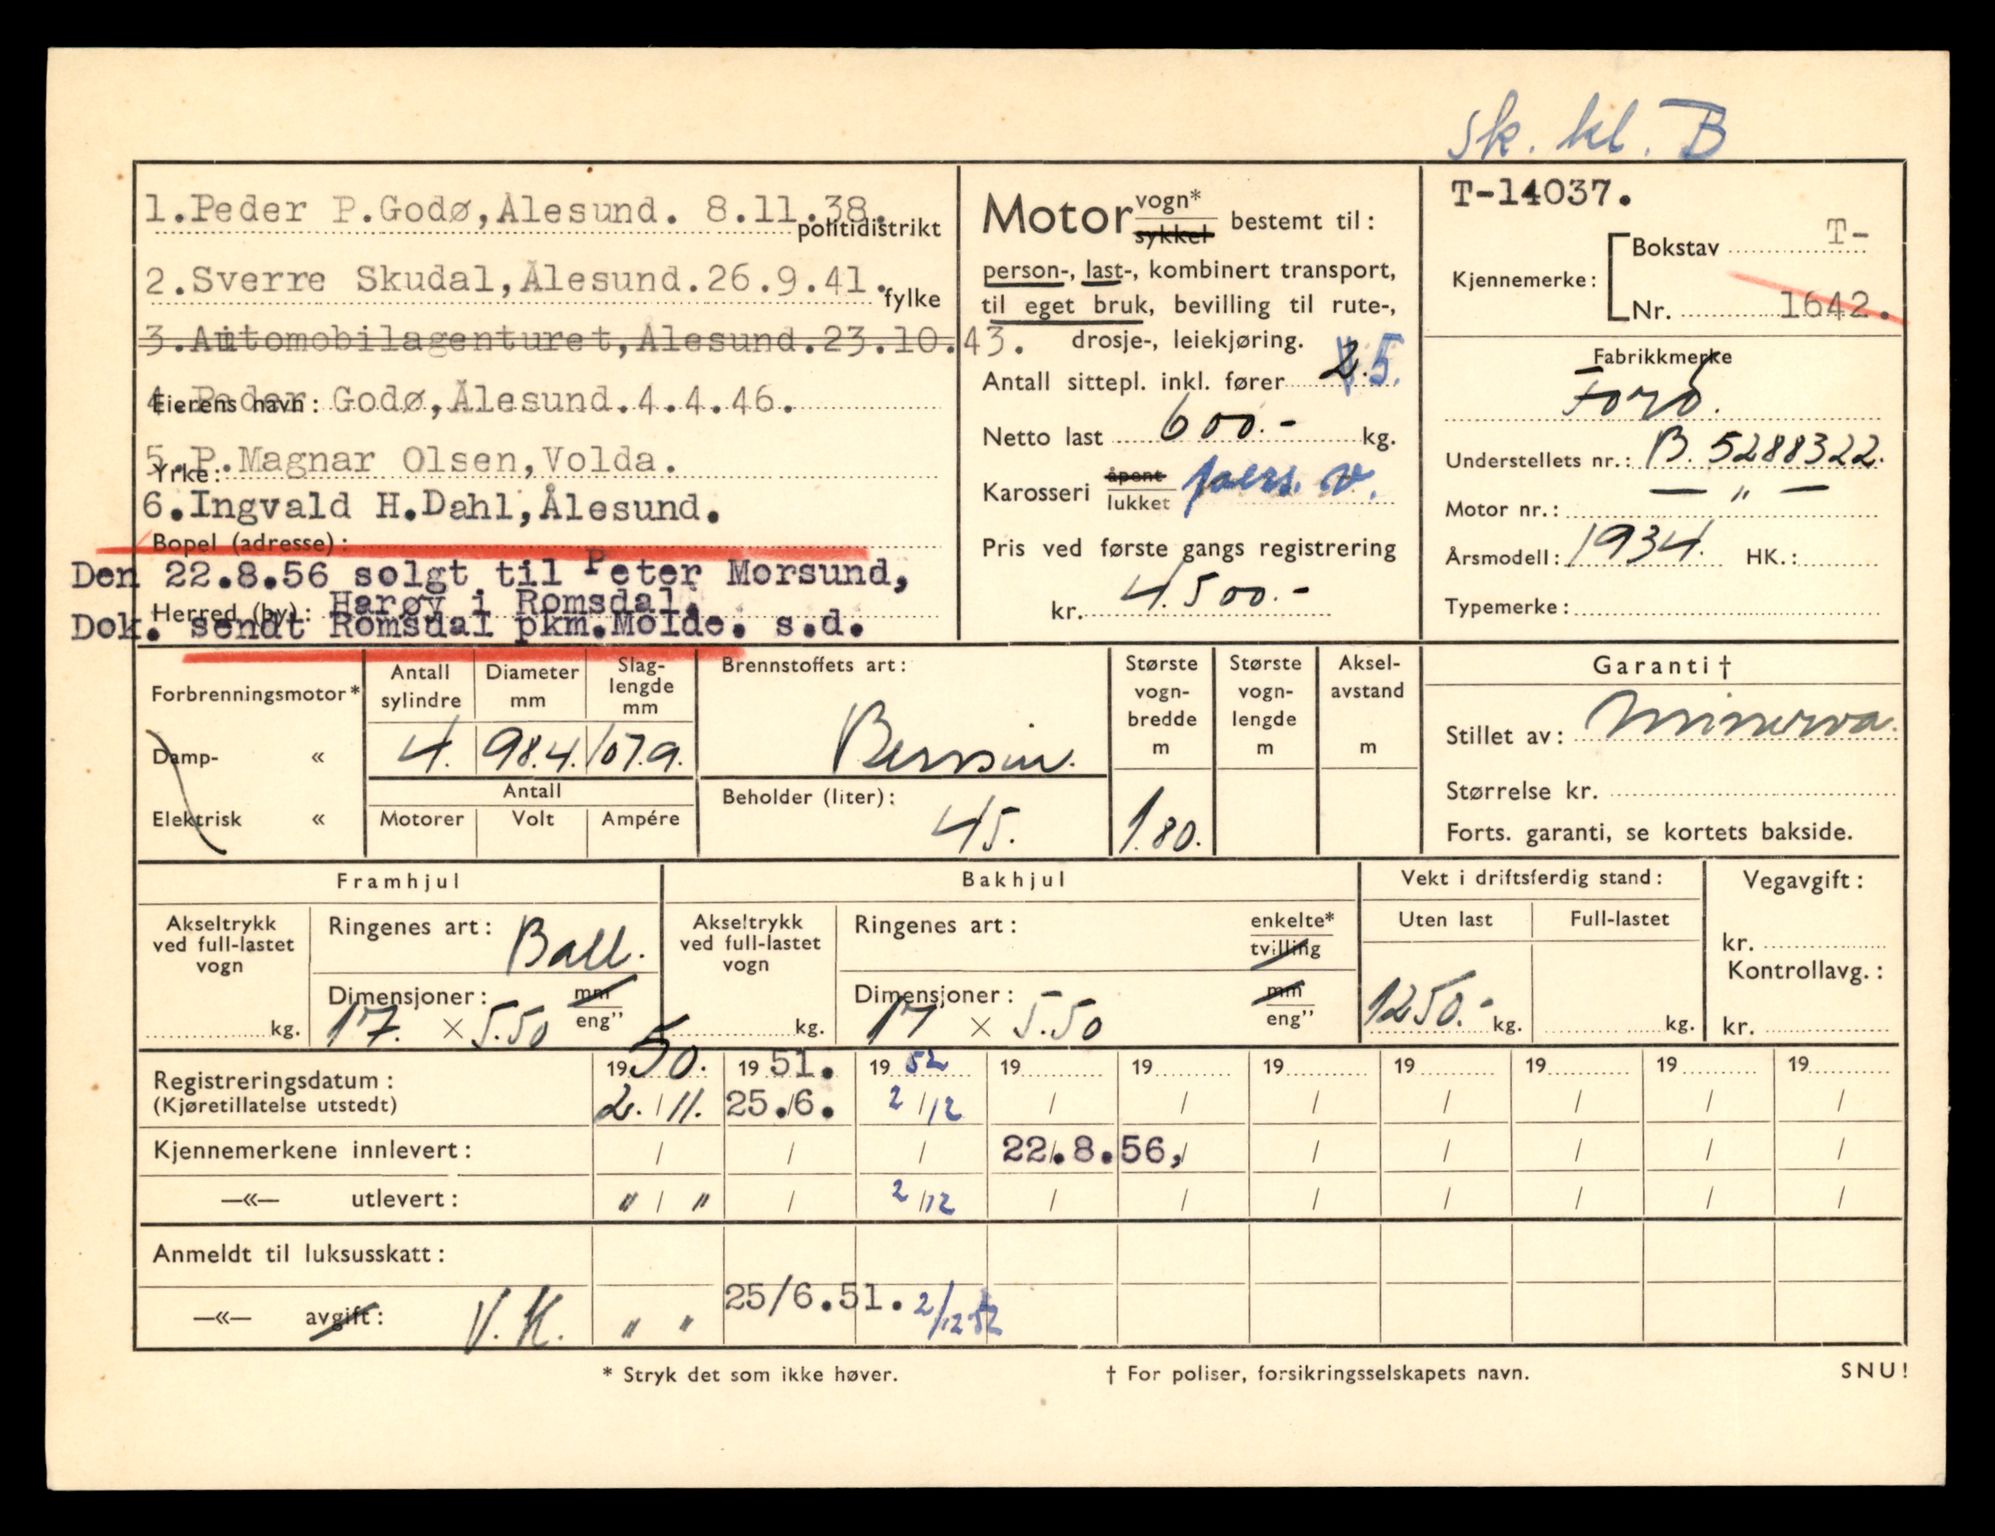 Sk. kl. B
1.Peder P.Godø,Ålesund. 8.11.38.
politidistrikt
2.Sverre Skudal,Ålesund.26.9.41.
fylke
3.Automobilagenturet,Ålesund.23.10.43.
4.Peder Godø,Ålesund.4.4.46.
Eierens navn:
5.P.Magnar Olsen,Volda.
Yrke:
6.Ingvald H.Dahl,Ålesund.
Bopel (adresse):
Den 22.8.56 solgt til Peter Morsund,
Herred (by): Harøy i Romsdal.
Dok. sendt Romsdal pkm.Molde. s.d.
Motor vogn* sykkel bestemt til:
person-, last-, kombinert transport,
til eget bruk, bevilling til rute-,
drosje-, leiekjøring.
Antall sittepl. inkl. fører 2. 5.
Netto last 600.- kg.
Karosseri åpent lukket pers. v.
Pris ved første gangs registrering
kr. 4.500.-
T-14037.
Kjennemerke: Bokstav T-
Nr. 1642.
Fabrikkmerke
Ford.
Understellets nr.: B. 5288322.
Motor nr.: — " —
Årsmodell: 1934. HK.:
Typemerke:
Forbrenningsmotor*
Damp- «
Elektrisk «
Antall sylindre Diameter mm Slag-lengde mm
4. 98.4. 107.9.
Antall
Motorer Volt Ampére
Brennstoffets art:
Bensin.
Beholder (liter):
45.
Største vogn-bredde m Største vogn-lengde m Aksel-avstand m
1.80.
Garanti †
Stillet av: Minerva.
Størrelse kr.
Forts. garanti, se kortets bakside.
Framhjul
Akseltrykk ved full-lastet vogn
kg.
Ringenes art: Ball.
Dimensjoner: mm
17. × 5.50 eng"
Bakhjul
Akseltrykk ved full-lastet vogn
kg.
Ringenes art: enkelte* tvilling
Dimensjoner: mm
17 × 5.50 eng"
Vekt i driftsferdig stand:
Uten last Full-lastet
1250.- kg. kg.
Vegavgift:
kr.
Kontrollavg.:
kr.
Registreringsdatum: 19 50. 19 51. 19 52 19 19 19 19 19 19 19
(Kjøretillatelse utstedt) 2. / 11. 25./6. 2 / 12 / / / / / / /
Kjennemerkene innlevert: / / / 22.8.56, / / / / /
—«— utlevert: " / " / 2 / 12 / / / / / / /
Anmeldt til luksusskatt:
—«— avgift: V.K. " " 25/6.51. 2/12 52
* Stryk det som ikke høver.
† For poliser, forsikringsselskapets navn.
SNU!